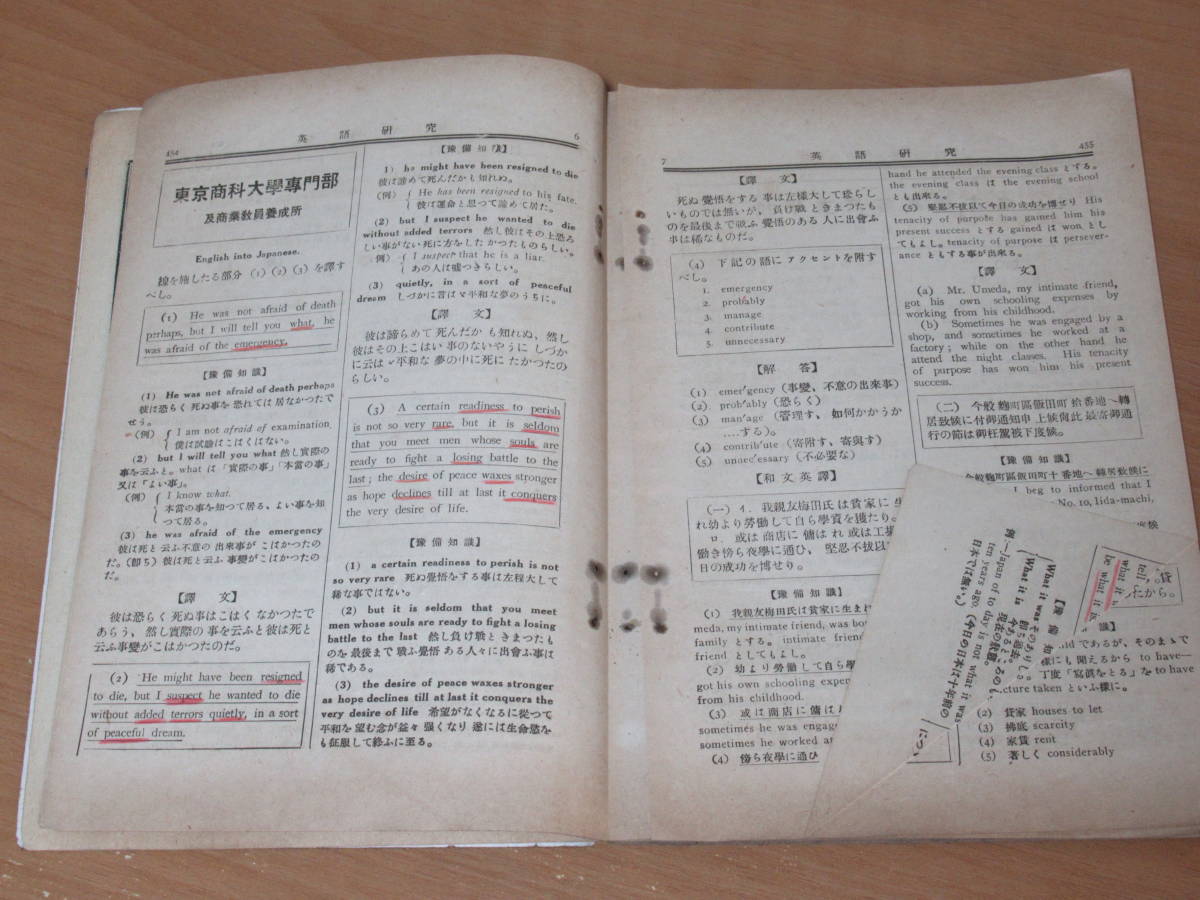 454 英語研究 6
東京商科大學專門部
及商業敎員養成所
English into Japanese.
線を施したる部分 (1) (2) (3) を譯す
べし。
(1) He was not afraid of death
perhaps, but I will tell you what, he
was afraid of the emergency.
【豫備知識】
(1) He was not afraid of death perhaps
彼は恐らく死ぬ事を恐れては居なかつたで
せう。
(例) I am not afraid of examination.
僕は試驗はこはくはない。
(2) but I will tell you what 然し實際の
事を云ふと。what は「實際の事」「本當の事」
又は「よい事」。
(例) I know what.
本當の事を知つて居る、よい事を知
つて居る。
(3) he was afraid of the emergency
彼は死と云ふ不意の出來事がこはかつたの
だ。(卽ち) 彼は死と云ふ事變がこはかつたの
だ。
【譯文】
彼は恐らく死ぬ事はこはくなかつたで
あらう、然し實際の事を云ふと彼は死と
云ふ事變がこはかつたのだ。
(2) He might have been resigned
to die, but I suspect he wanted to die
without added terrors quietly, in a sort
of peaceful dream.
【豫備知識】
1) he might have been resigned to die
彼は諦めて死んだかも知れぬ。
(例) He has been resigned to his fate.
彼は運命と思つて諦めて居た。
(2) but I suspect he wanted to die
without added terrors 然し彼はその上恐ろ
しい事がない死に方をしたかつたものらしい。
例) I suspect that he is a liar.
あの人は嘘つきらしい。
(3) quietly, in a sort of peaceful
dream しづかに言はゞ平和な夢のうちに。
【譯文】
彼は諦らめて死んだかも知れぬ、然し
彼はその上こはい事のないやうにしづか
に云はゞ平和な夢の中に死にたかつたの
らしい。
(3) A certain readiness to perish
is not so very rare, but it is seldom
that you meet men whose souls are
ready to fight a losing battle to the
last; the desire of peace waxes stronger
as hope declines till at last it conquers
the very desire of life.
【豫備知識】
(1) a certain readiness to perish is not
so very rare 死ぬ覺悟をする事は左程大して
稀な事ではない。
(2) but it is seldom that you meet
men whose souls are ready to fight a losing
battle to the last 然し負け戰ときまつたも
のを最後まで戰ふ覺悟ある人々に出會ふ事は
稀である。
(3) the desire of peace waxes stronger
as hope declines till at last it conquers the
very desire of life 希望がなくなるに從つて
平和を望む念が益々强くなり遂には生命慾を
も征服して終ふに至る。
7 英語研究 455
【譯文】
死ぬ覺悟をする事は左樣大して珍らし
いものでは無いが、負け戰ときまつたも
のを最後まで戰ふ覺悟のある人に出會ふ
事は稀なものだ。
(4) 下記の語にアクセントを附す
べし。
1. emergency
2. probably
3. manage
4. contribute
5. unnecessary
【解答】
(1) emer'gency (事變、不意の出來事)
(2) prob'ably (恐らく)
(3) man'age (管理す、如何かかうか
....する)。
(4) contrib'ute (寄附す、寄與す)
(5) unnec'essary (不必要な)
【和文英譯】
(一) イ. 我親友梅田氏は貧家に生
れ幼より勞働して自ら學資を獲たり。
ロ. 或は商店に傭はれ或は工場
働き傍ら夜學に通ひ、堅忍不拔以
日の成功を博せり。
【豫備知識】
(1) 我親友梅田氏は貧家に生まれ
meda, my intimate friend, was bo
family とする。intimate friend
friend としてもよし。
(2) 幼より勞働して自ら學
got his own schooling expen
from his childhood.
(3) 或は商店に傭は
sometimes he was engag
sometimes he worked at
(4) 傍ら夜學に通ひ
hand he attended the evening class とする。
the evening class は the evening school
とも出來る。
(5) 堅忍不拔以て今日の成功を博せり His
tenacity of purpose has gained him his
present success とする gained は won とし
てもよし。tenacity of purpose は persever-
ance ともする事が出來る。
【譯文】
(a) Mr. Umeda, my intimate friend,
got his own schooling expenses by
working from his childhood.
(b) Sometimes he was engaged by a
shop, and sometimes he worked at a
factory; while on the other hand he
attend the night classes. His tenacity
of purpose has won him his present
success.
(二) 今般麴町區飯田町拾番地へ轉
居致候に付御通知申上候尙此最寄御通
行の節は御枉駕被下度候。
【豫備知識】
今般麴町區飯田町十番地へ轉居致候に
I beg to informed that I
No. 10, Iida-machi,
度候
識】
ld であるが、そのまゝで
樣にも聞えるから to have—
丁度「寫眞をとる」を to have
cture taken といふ樣に。
(2) 貸家 houses to let
(3) 拂底 scarcity
(4) 家賃 rent
(5) 著しく considerably
tell
what it
he what it
だから。
【豫備知
What it was そのありし、
卽ち過去。
What it is 今あるところのもの
現在の狀態。
例.—Japan of to day is not what it was
ten years ago.
日本では無い。) (今日の日本は十年前の
につ